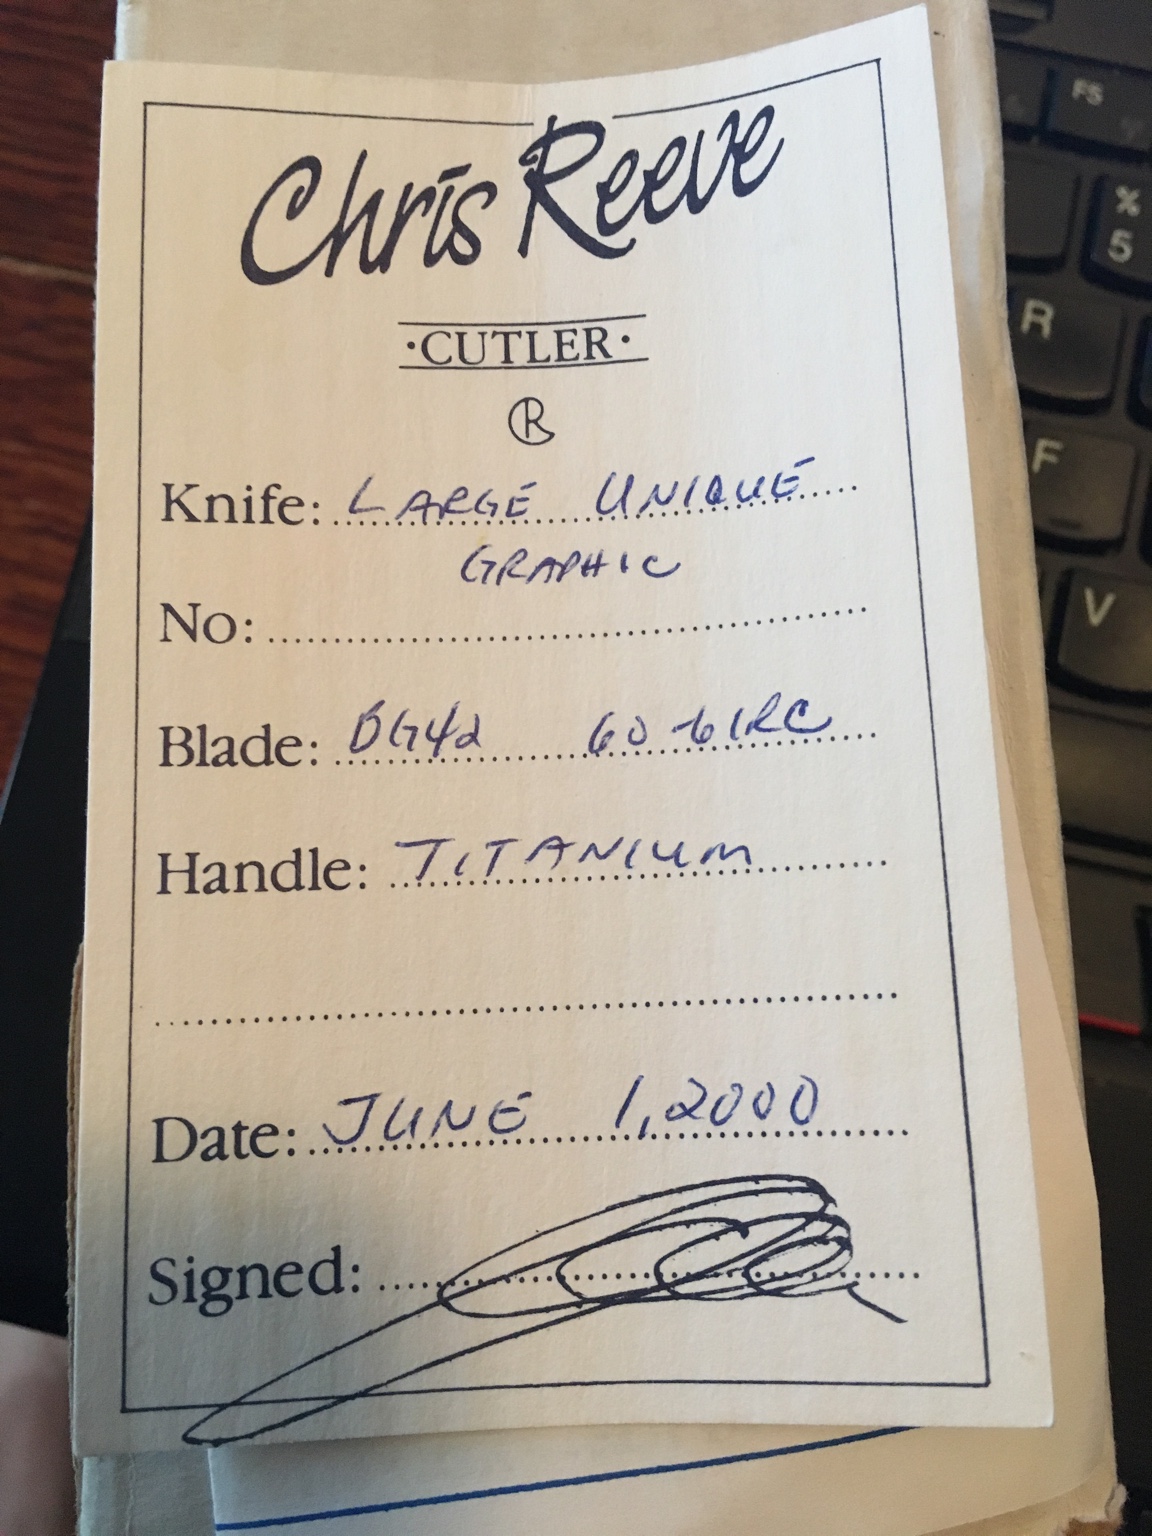 Chris Reeve
·CUTLER·
R
Knife: LARGE UNIQUE
GRAPHIC
No:
Blade: BG42 60-61RC
Handle: TITANIUM
Date: JUNE 1, 2000
Signed:
F5
%
5
R
F
V